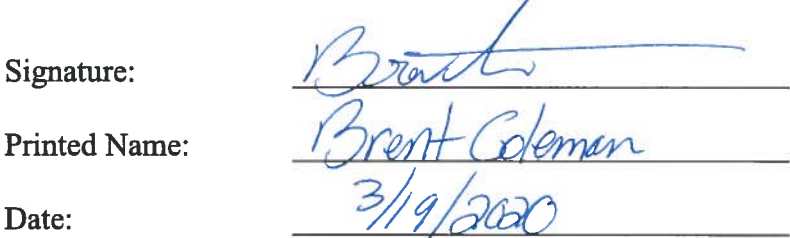 Signature:
Printed Name: Brent Coleman
Date: 3/19/2020